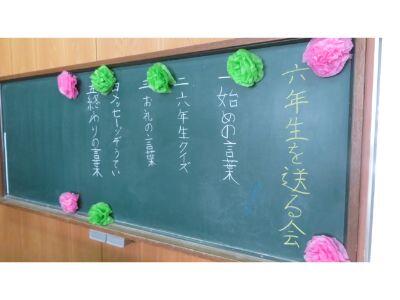 六年生を送る会
一 始めの言葉
二 六年生クイズ
三 お礼の言葉
四 メッセージぞうてい
五 終わりの言葉